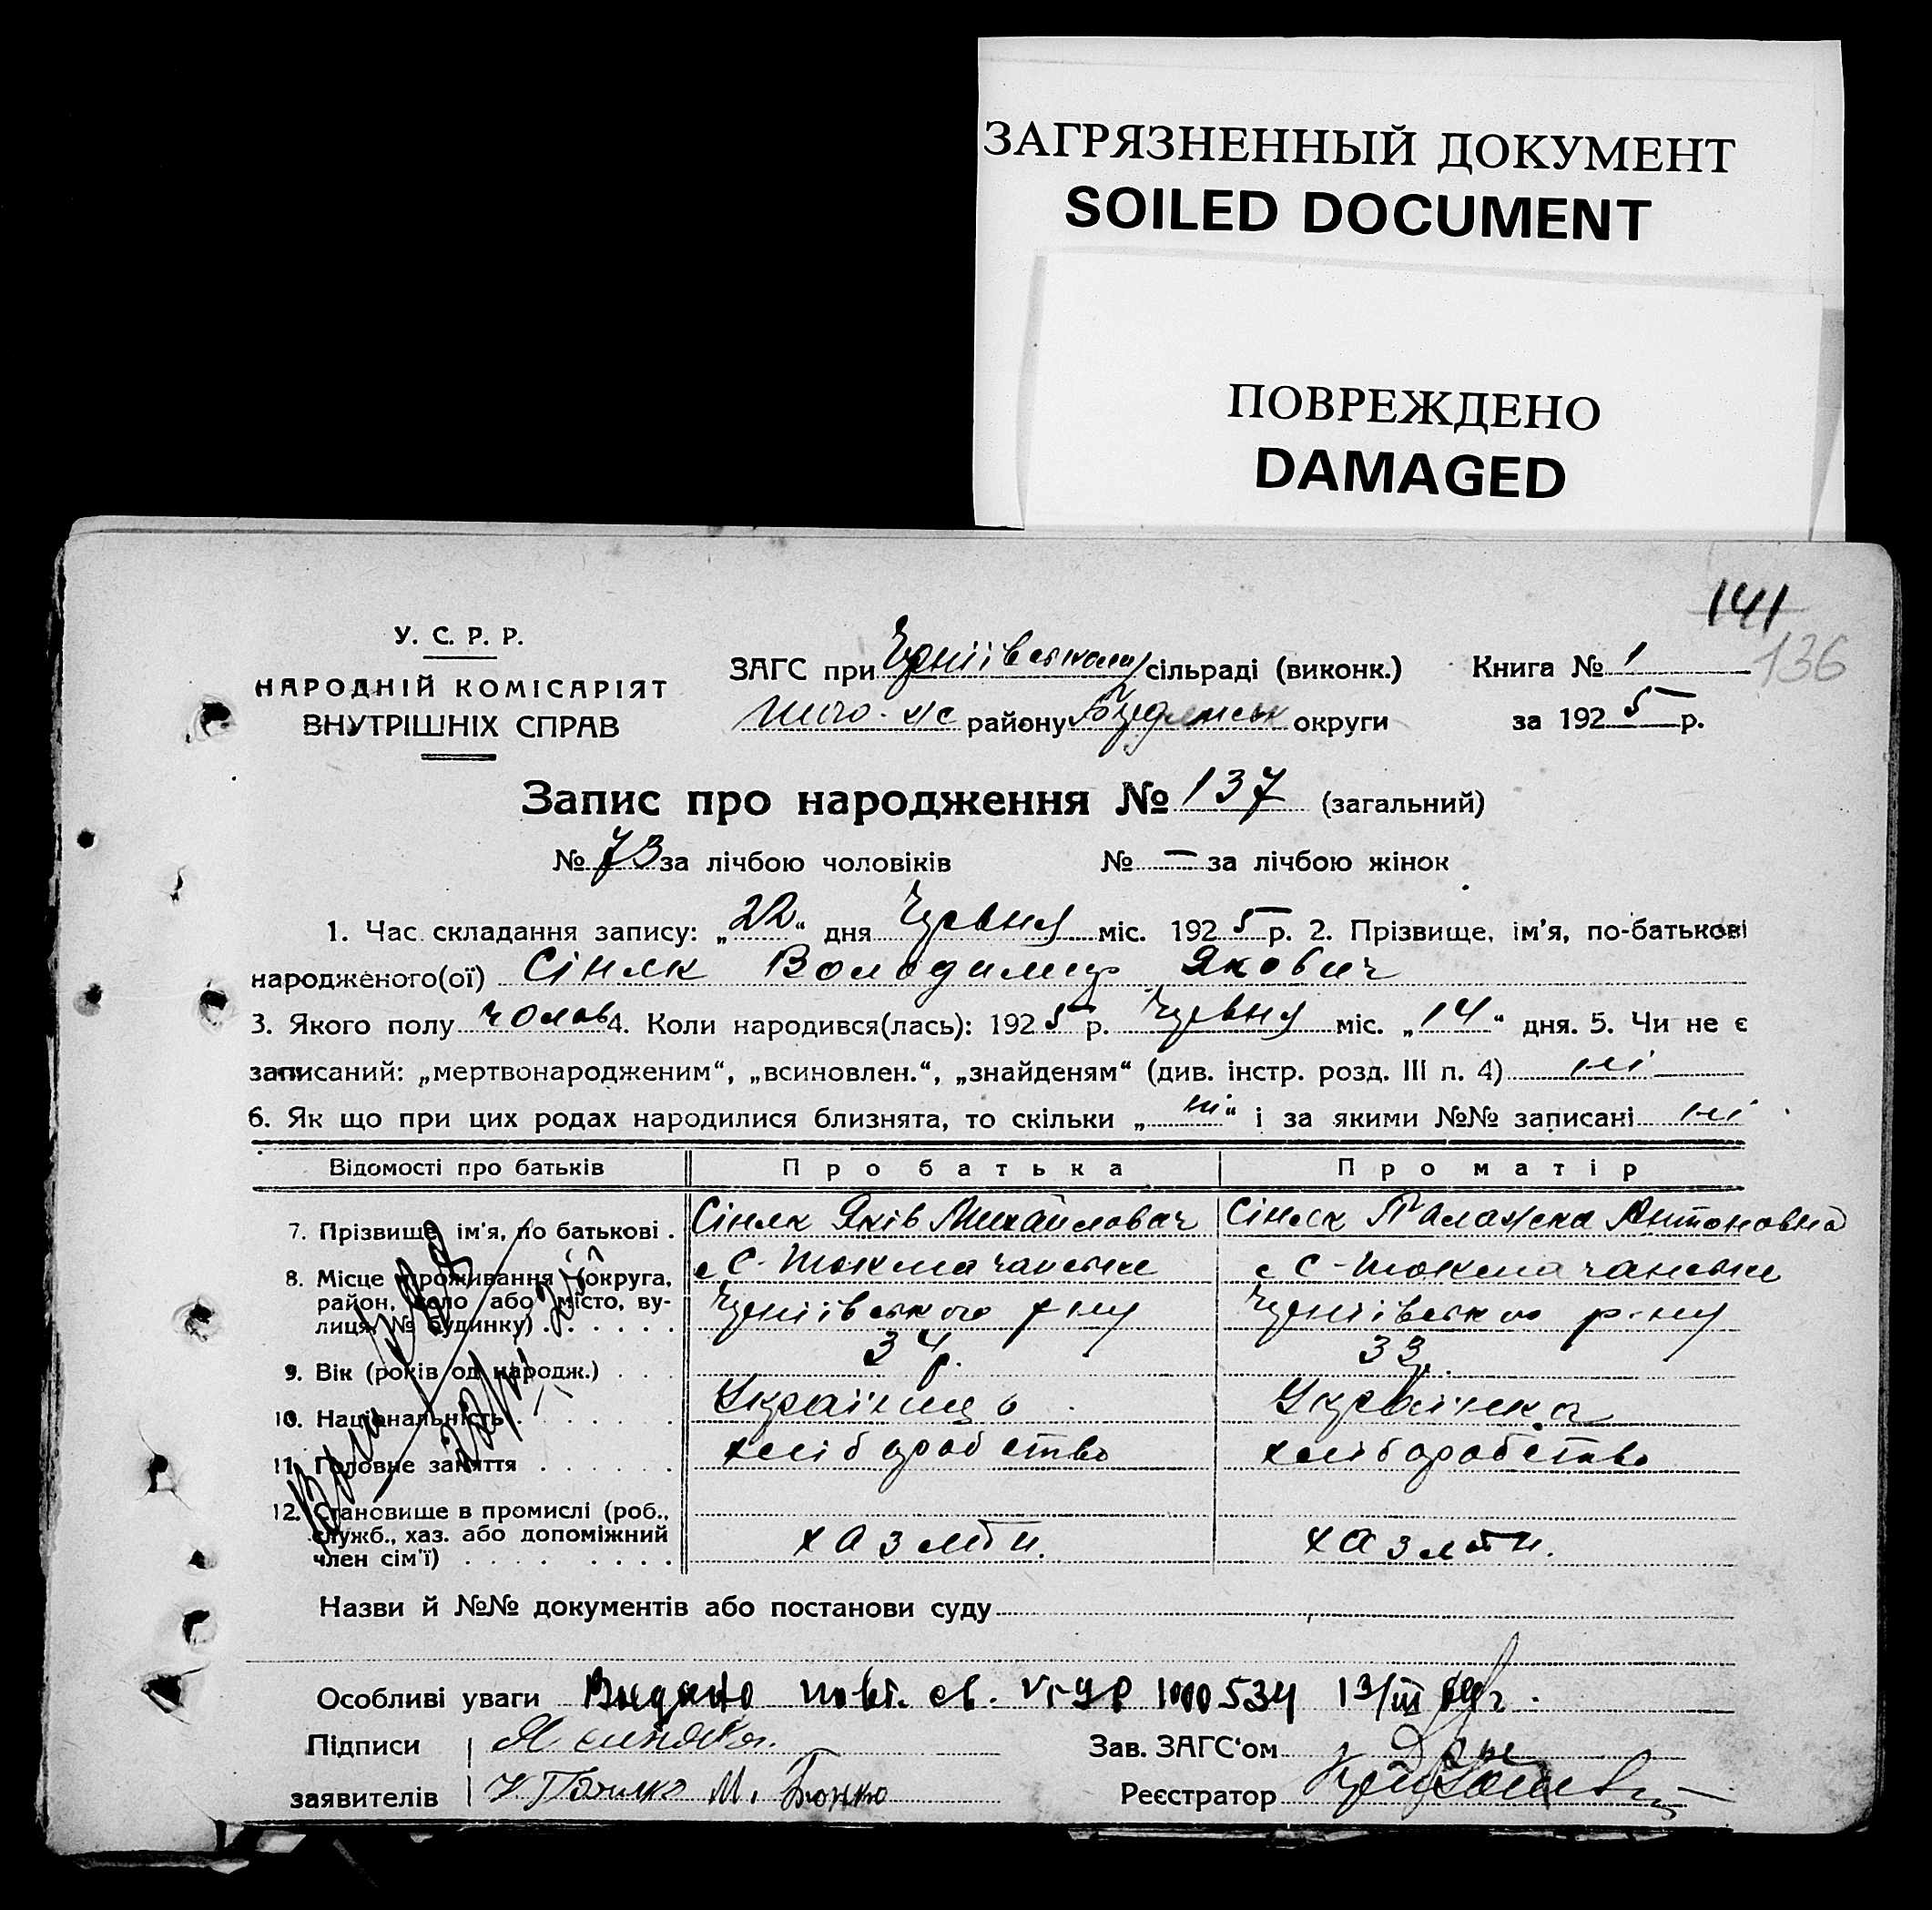 ЗАГРЯЗНЕННЫЙ ДОКУМЕНТ
SOILED DOCUMENT
ПОВРЕЖДЕНО
DAMAGED
141
136
У. С. Р. Р.
НАРОДНІЙ КОМІСАРІЯТ
ВНУТРІШНІХ СПРАВ
ЗАГС при сільраді (виконк.) Книга № 1
району округи за 1925 р.
Запис про народження № 137 (загальний)
№ 73 за лічбою чоловіків № — за лічбою жінок
1. Час складання запису: „22“ дня Червня міс. 1925 р. 2. Прізвище, ім'я, по-батькові
народженого(ої) Сіняк Володимир Якович
3. Якого полу чолов 4. Коли народився(лась): 1925 р. Червня міс. „14“ дня. 5. Чи не є
записаний: „мертвонародженим“, „всиновлен.“, „знайденям“ (див. інстр. розд. III п. 4) ні
6. Як що при цих родах народилися близнята, то скільки „ні“ і за якими №№ записані ні
Відомості про батьків Про батька Про матір
7. Прізвище, ім'я, по батькові . Сіняк Яків Михайлович Сіняк Палажка Антоновна
8. Місце проживання (округа, район, село або місто, вулиця, № будинку) . . . . . . с С-Токмачанське Чернівського р-ну с С-Токмачанське Чернівського р-ну
9. Вік (років од народж.) . . . 34 р. 33 р.
10. Національність . . . . . . Українець Українка
11. Головне заняття . . . . . . хліборобство хліборобство
12. Становище в промислі (роб., служб., хаз. або допоміжний член сім'ї) . . . . . . . . . хазяїн. хазяїн.
Назви й №№ документів або постанови суду
Особливі уваги Видано повт. св. 534 13/III
Підписи Зав. ЗАГС'ом
заявителів М. Бонко Реєстратор